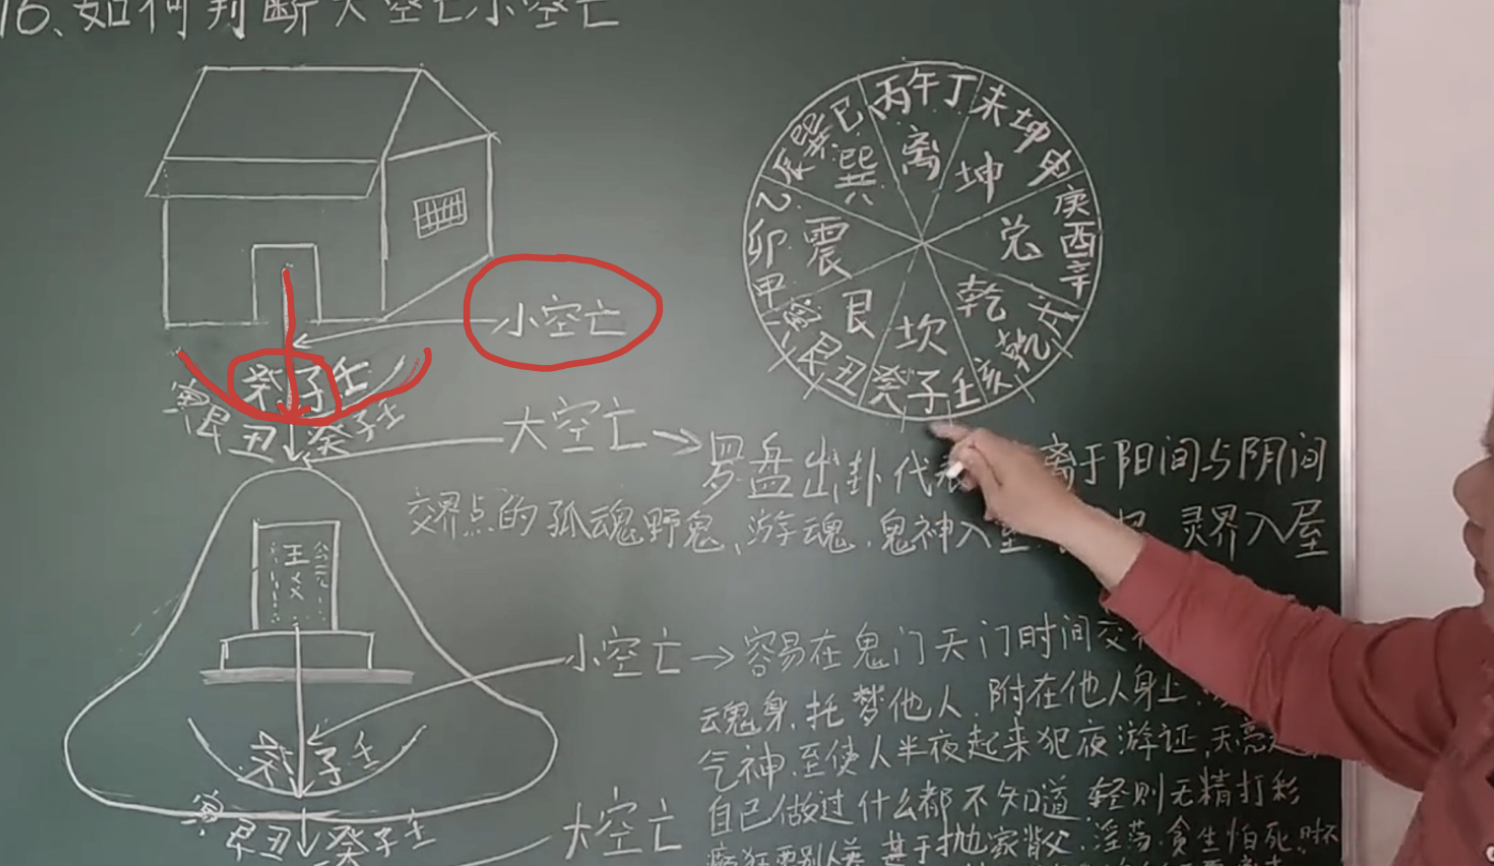 16、如何判断大空亡小空亡
丙午丁
未坤申
庚酉辛
戌乾亥
壬子癸
丑艮寅
甲卯乙
辰巽巳
离
坤
兑
乾
坎
艮
震
巽
小空亡
癸子壬
寅艮丑癸子壬
大空亡
罗盘出卦代表 离于阳间与阴间
交界点的孤魂野鬼、游魂、鬼神入 灵界入屋
王
公
小空亡
容易在鬼门天门时间交
魂身、托梦他人、附在他人身上
气神、至使人半夜起来犯夜游证、天亮
自己做过什么都不知道、轻则无精打彩
基于抛家背父、淫荡、贪生怕死、
癸子壬
寅艮丑癸子壬
大空亡